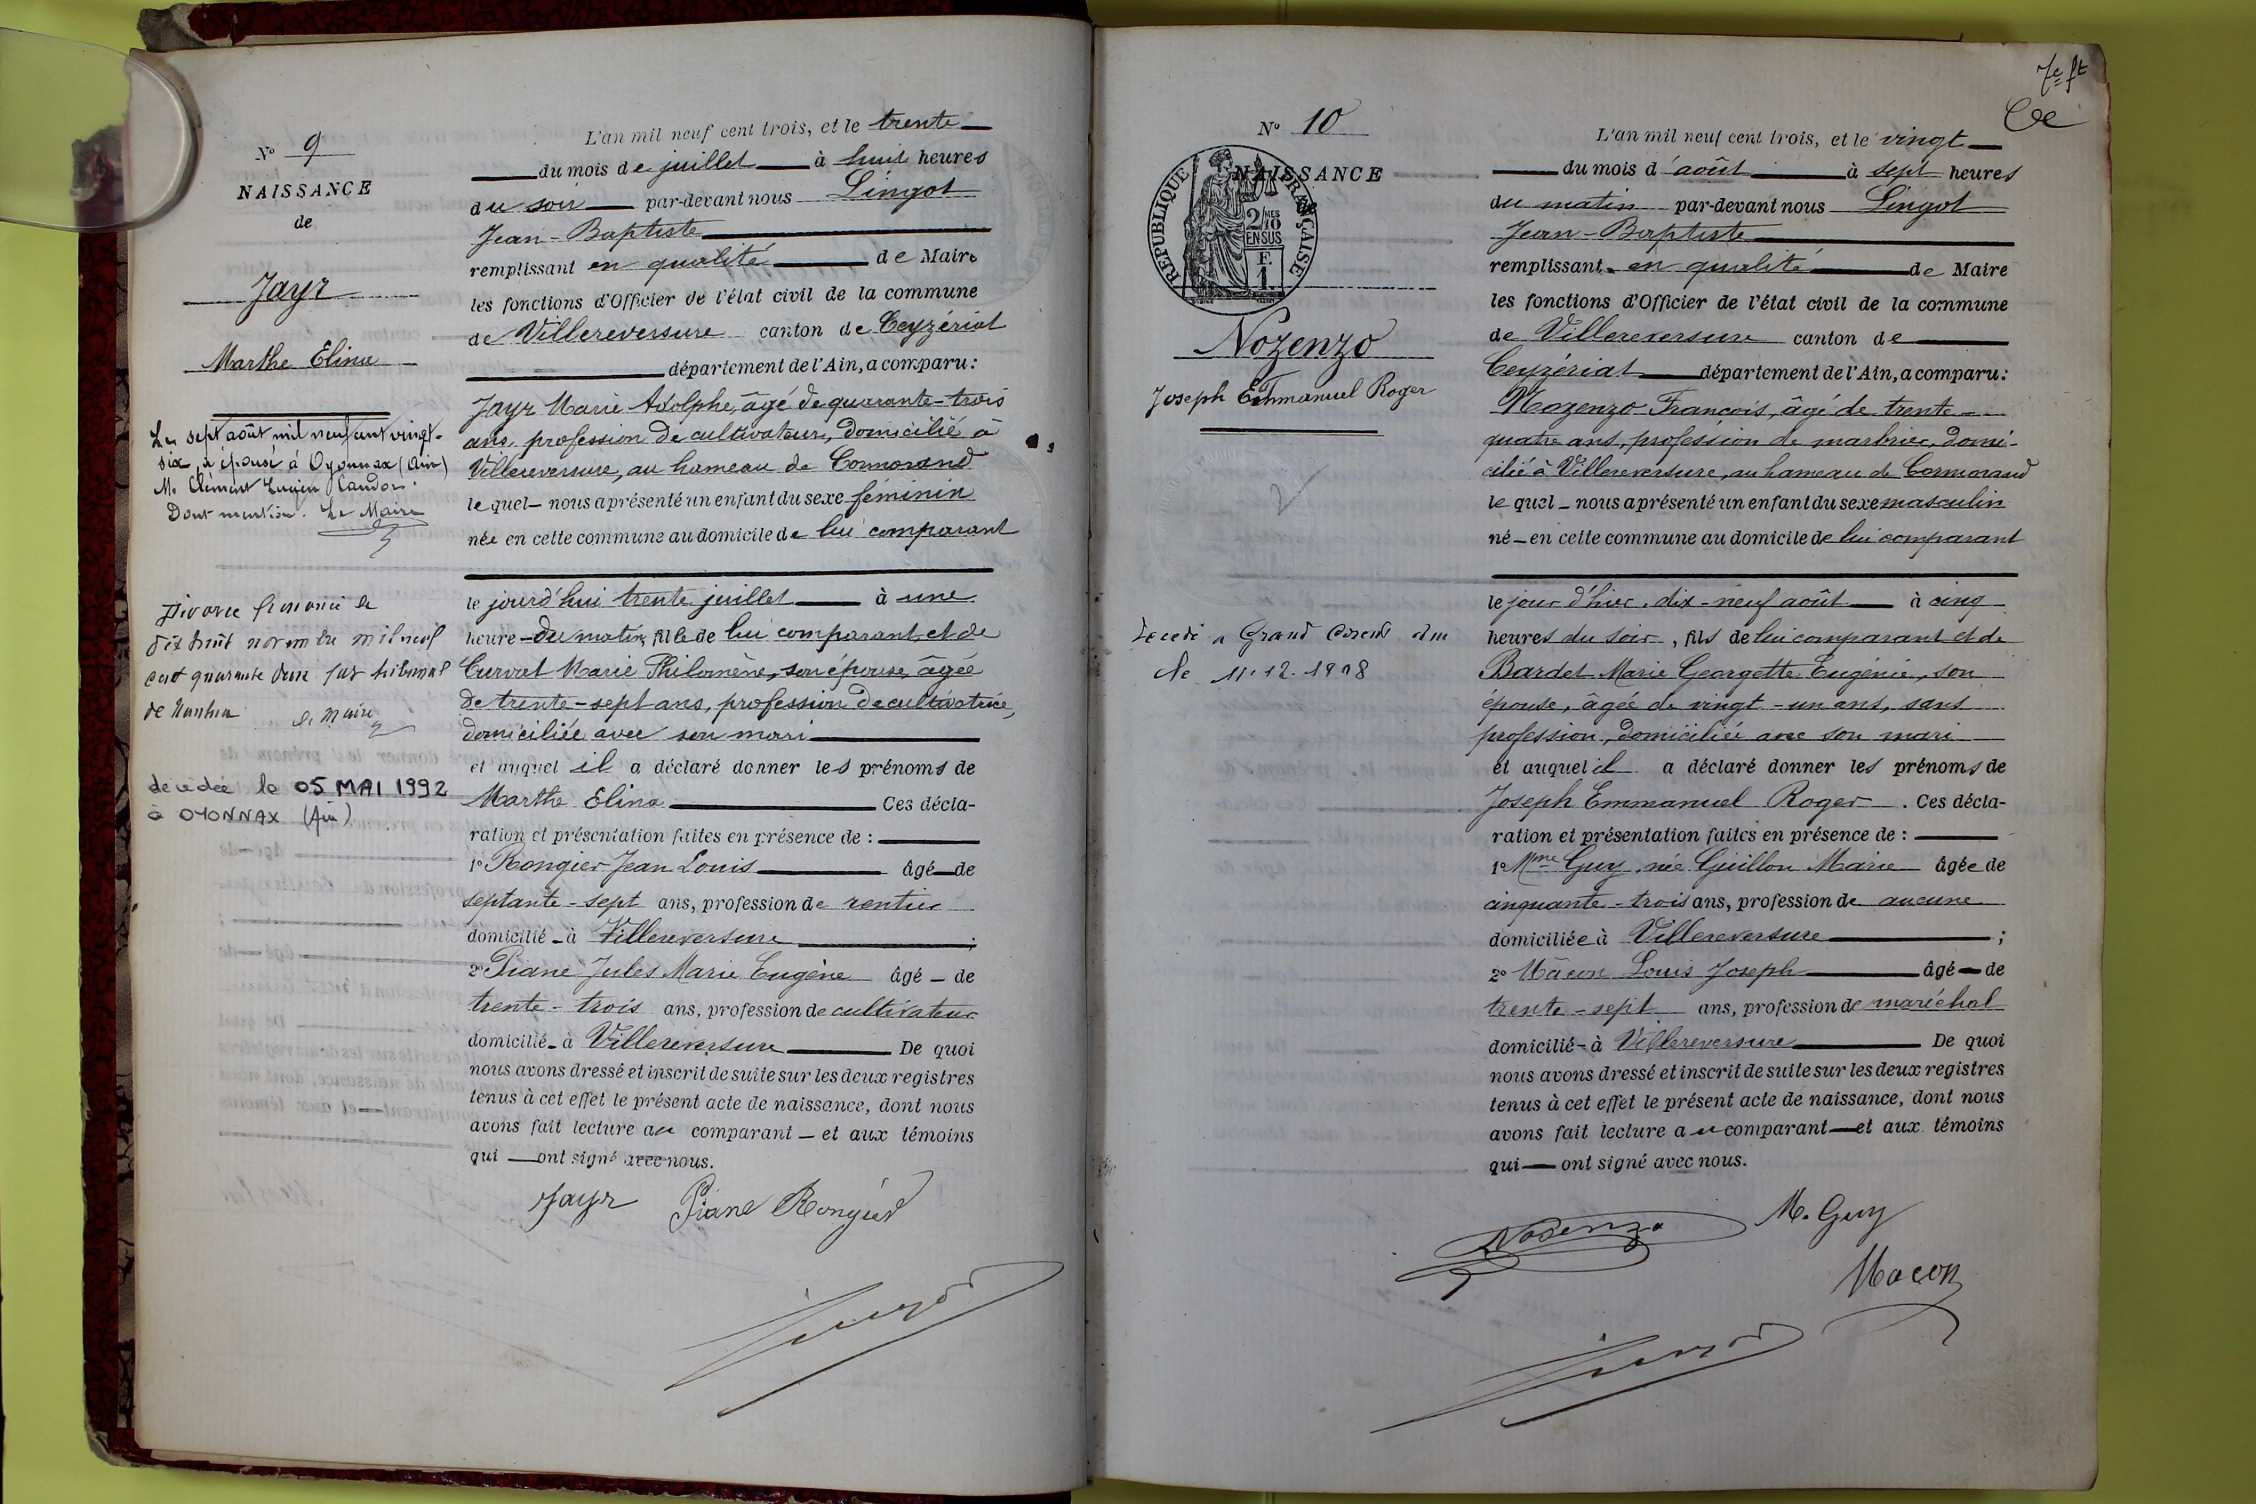 N° 9
NAISSANCE
de
Jayr
Marthe Elina
Le sept août mil neuf cent vingt-
six, a épousé à Oyonnax (Ain)
M. Clément Eugène
Dont mention. Le Maire
Divorce prononcé le
dix huit novembre mil neuf
cent quarante deux par tribunal
de Nantua le Maire
décédée le 05 MAI 1992
à OYONNAX (Ain)
L'an mil neuf cent trois, et le trente
du mois de juillet à huit heures
du soir par-devant nous Lingot
Jean-Baptiste
remplissant en qualité de Maire
les fonctions d'Officier de l'état civil de la commune
de Villereversure canton de Ceyzériat
département de l'Ain, a comparu :
Jayr Marie Adolphe, âgé de quarante-trois
ans, profession de cultivateur, domicilié à
Villereversure, au hameau de Cormorand
lequel nous a présenté un enfant du sexe féminin
née en cette commune au domicile de lui comparant
le jourd'hui trente juillet à une
heure du matin, fille de lui comparant et de
Curvat Marie Philomène, son épouse, âgée
de trente-sept ans, profession de cultivatrice,
domiciliée avec son mari
et auquel il a déclaré donner les prénoms de
Marthe Elina Ces décla-
ration et présentation faites en présence de :
1° Rongier Jean Louis âgé de
septante-sept ans, profession de rentier
domicilié à Villereversure ;
2° Piane Jules Marie Eugène âgé de
trente-trois ans, profession de cultivateur
domicilié à Villereversure De quoi
nous avons dressé et inscrit de suite sur les deux registres
tenus à cet effet le présent acte de naissance, dont nous
avons fait lecture au comparant et aux témoins
qui ont signé avec nous.
Jayr Piane Rongier
7e ft
N° 10
NAISSANCE
RÉPUBLIQUE FRANÇAISE
2/10 MES
EN SUS
F.
1
Nozenzo
Joseph Emmanuel Roger
Decedé a Grand Corent Ain
le 11.12.1908
L'an mil neuf cent trois, et le vingt
du mois d'août à sept heures
du matin par-devant nous Lingot
Jean-Baptiste
remplissant en qualité de Maire
les fonctions d'Officier de l'état civil de la commune
de Villereversure canton de
Ceyzériat département de l'Ain, a comparu :
Nozenzo François, âgé de trente-
quatre ans, profession de marbrier, domi-
cilié à Villereversure, au hameau de Cormorand
lequel nous a présenté un enfant du sexe masculin
né en cette commune au domicile de lui comparant
le jour d'hier, dix-neuf août à cinq
heures du soir, fils de lui comparant et de
Bardet Marie Georgette Eugénie, son
épouse, âgée de vingt-un ans, sans
profession, domiciliée avec son mari
et auquel il a déclaré donner les prénoms de
Joseph Emmanuel Roger. Ces décla-
ration et présentation faites en présence de :
1° Mme Guy, née Guillon Marie âgée de
cinquante-trois ans, profession de aucune
domiciliée à Villereversure ;
2° Mâcon Louis Joseph âgé de
trente-sept ans, profession de maréchal
domicilié à Villereversure De quoi
nous avons dressé et inscrit de suite sur les deux registres
tenus à cet effet le présent acte de naissance, dont nous
avons fait lecture au comparant et aux témoins
qui ont signé avec nous.
Nosenzo M. Guy
Macon